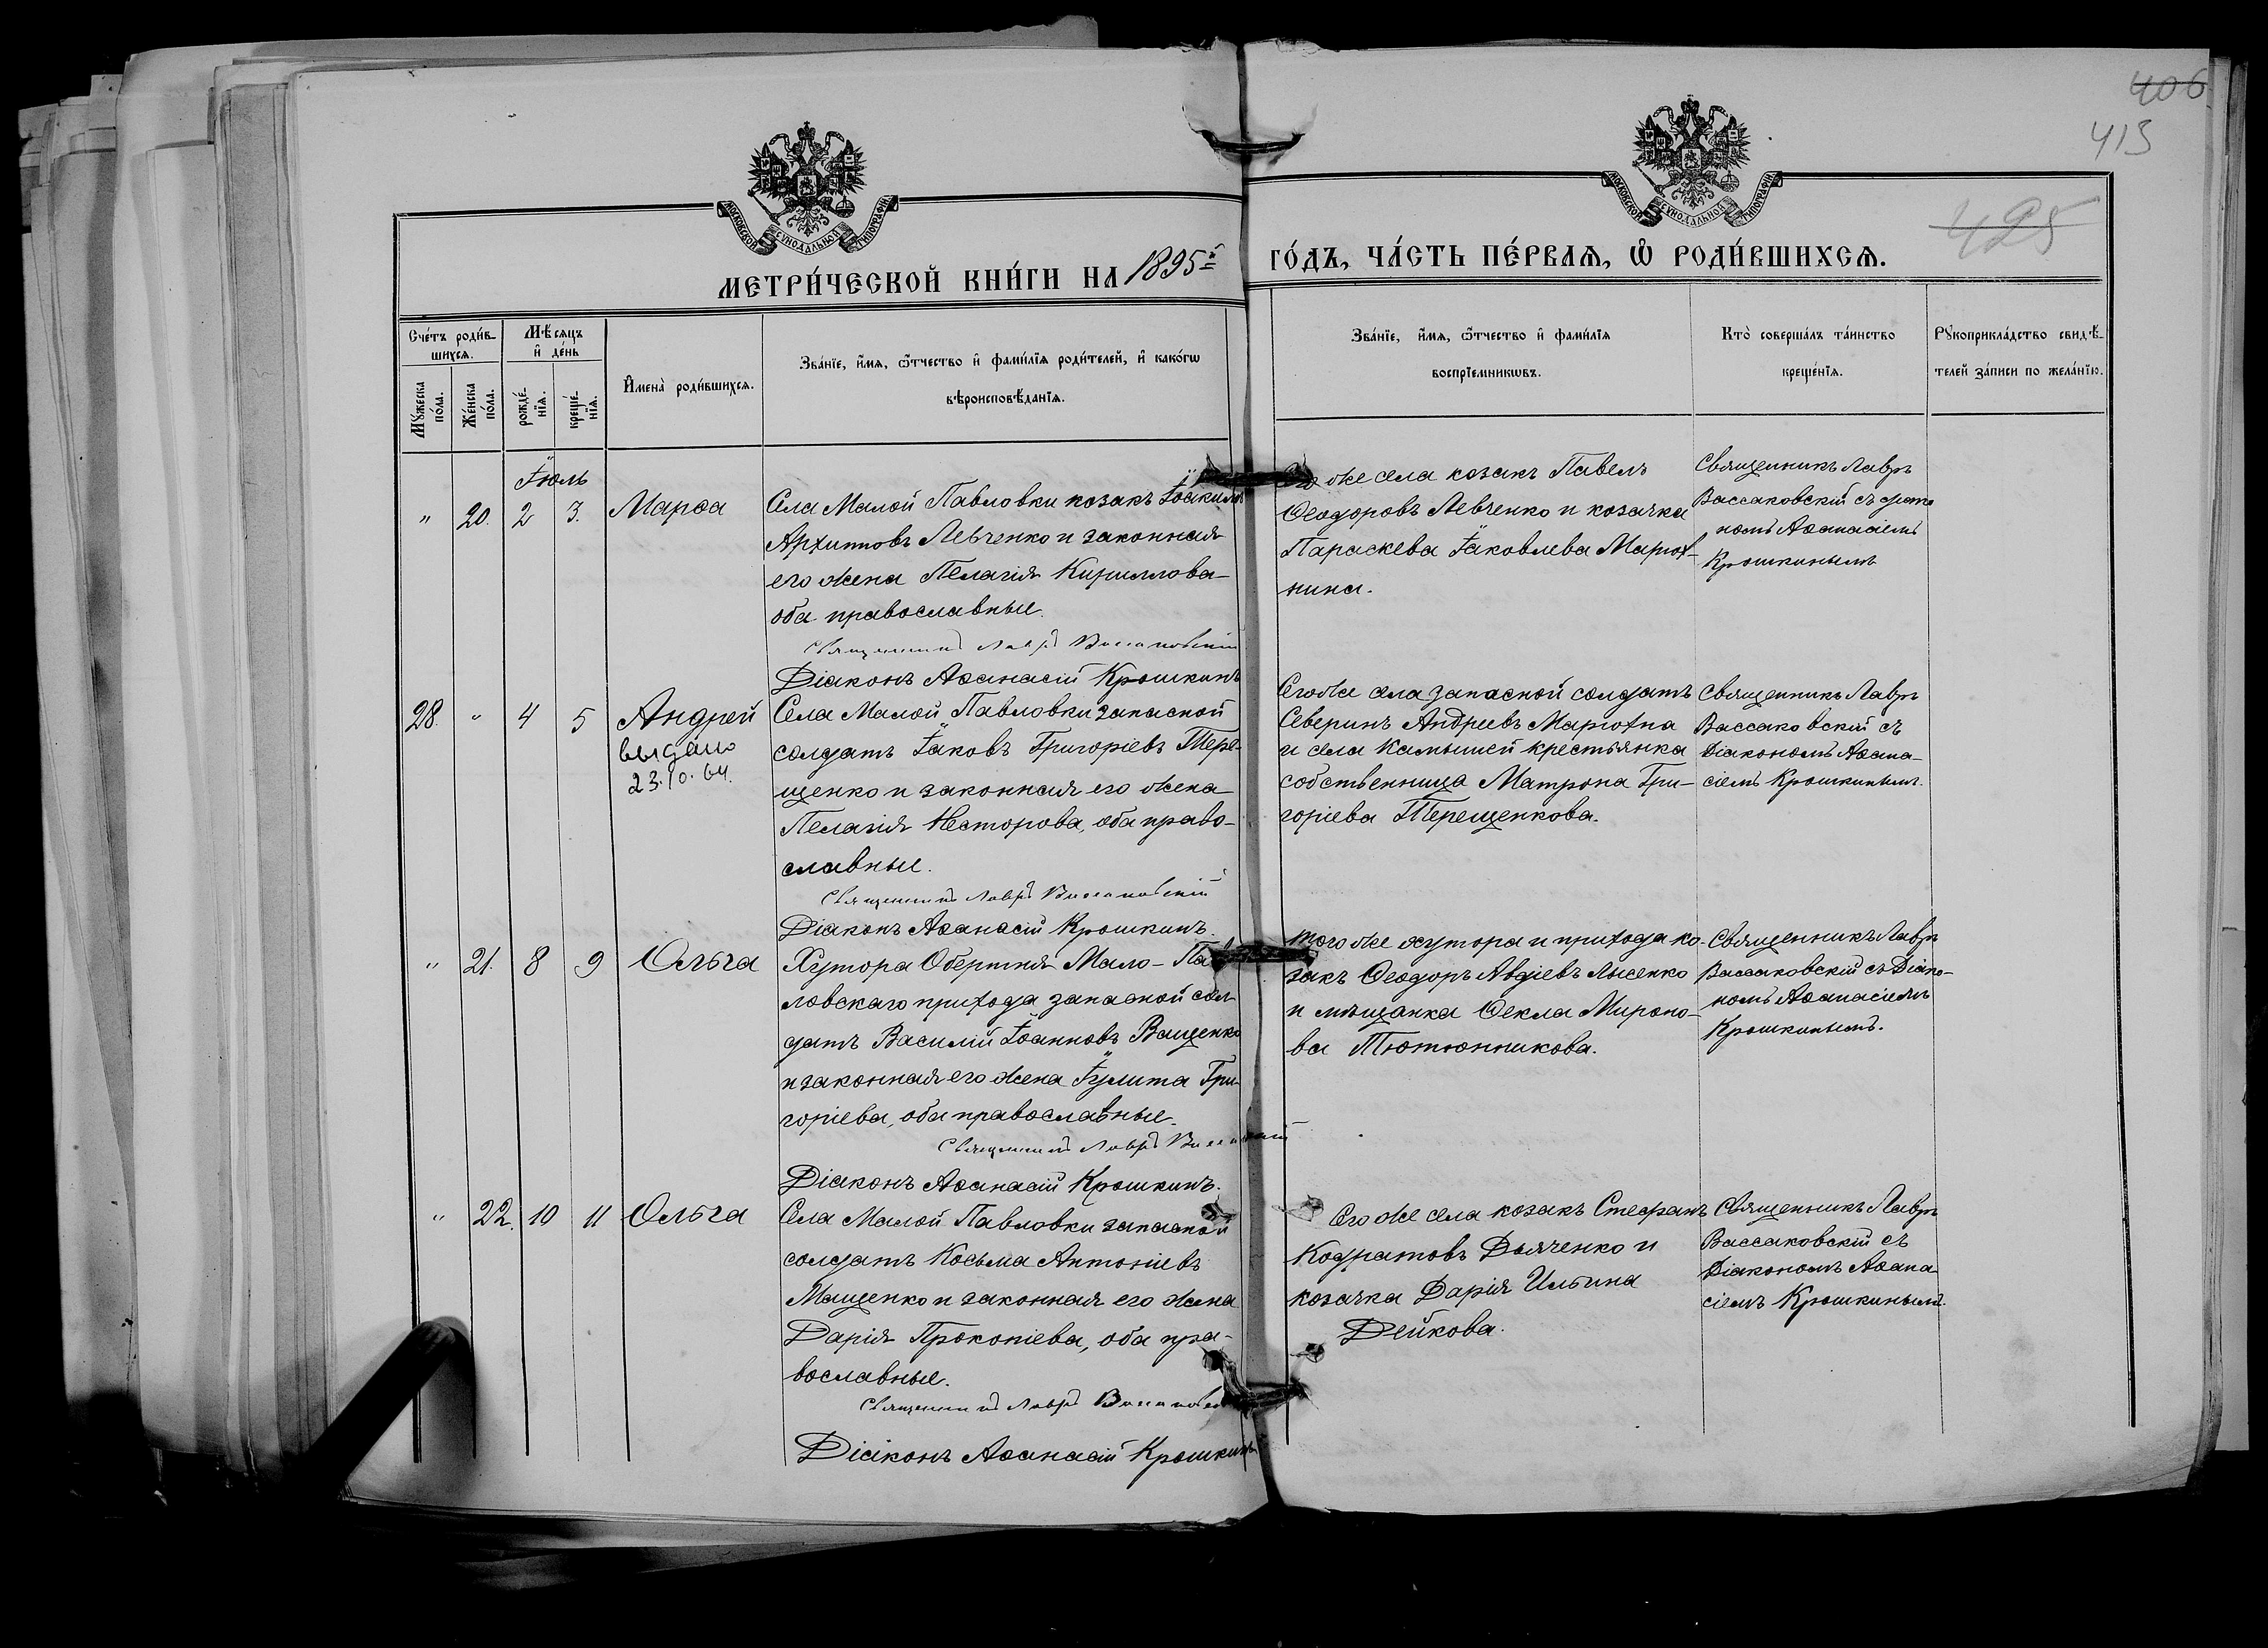 406
413
425
МОСКОВСКОЙ СѴНОДАЛЬНОЙ ТИПОГРАФІИ
МОСКОВСКОЙ СѴНОДАЛЬНОЙ ТИПОГРАФІИ
МЕТРИ́ЧЕСКОЙ КНИ́ГИ НА 1895й
ГО́ДЪ, ЧА́СТЬ ПЕ́РВАѦ, Ѽ РОДИ́ВШИХСѦ.
Сче́тъ роди́в-
шихсѧ.
Мꙋжеска по́ла.
Же́нска по́ла.
Мѣ́сяцъ
и҆ де́нь
рожде́-
нїѧ.
креще́-
нїѧ.
И҆мена̀ роди́вшихсѧ.
Зва́нїе, и҆́мѧ, ѻ҆́тчество и҆ фами́лїѧ роди́телей, и҆ како́гѡ
вѣроисповѣ́данїѧ.
Зва́нїе, и҆́мѧ, ѻ҆́тчество и҆ фами́лїѧ
воспрїемникѡвъ.
Кто̀ соверша́лъ та́инство
креще́нїѧ.
Рꙋкоприкла́дство свидѣ́-
телей за́писи по жела́нїю.
Іюль
" 20. 2 3. Марѳа
Села Малой Павловки козакъ Іоакимъ
Архиповъ Левченко и законная
его жена Пелагія Кириллова
оба православные.
Священникъ Лавръ Вассаковскій
Діаконъ Аѳанасій Крошкинъ
Его же села козакъ Павелъ
Ѳеодоровъ Левченко и козачка
Параскева Іаковлева Марюх-
нина.
Священникъ Лавръ
Вассаковскій съ діако
номъ Аѳанасіемъ
Крошкинымъ
28. " 4 5 Андрей
выдано
23.10.64.
Села Малой Павловки запасной
солдатъ Іаковъ Григоріевъ Тере-
щенко и законная его жена
Пелагія Несторова, оба право-
славные.
Священникъ Лавръ Вассаковскій
Діаконъ Аѳанасій Крошкинъ.
Его же села запасной солдатъ
Северинъ Андреевъ Марюхна
и села Камышей крестьянка
собственница Матрона Гри-
горіева Терещенкова.
Священникъ Лавръ
Вассаковскій съ
Діакономъ Аѳана-
сіемъ Крошкинымъ.
" 21. 8 9 Ольга
Хутора Обертня Мало-Па
ловскаго прихода запасной сол
датъ Василій Іоанновъ Ващенко
и законная его жена Іулита Гри-
горіева, оба православные.
Священникъ Лавръ Вассаковскій
Діаконъ Аѳанасій Крошкинъ.
того же хутора и прихода ко-
закъ Ѳеодоръ Авдіевъ Лысенко
и мѣщанка Ѳекла Мироно-
ва Тютюнникова.
Священникъ Лавръ
Вассаковскій съ Діако-
номъ Аѳанасіемъ
Крошкинымъ.
" 22. 10 11 Ольга
Села Малой Павловки запасной
солдатъ Косьма Антоніевъ
Мащенко и законная его жена
Дарія Прокопіева, оба пра-
вославные.
Священникъ Лавръ Вассаковскій
Діаконъ Аѳанасій Крошкинъ
Его же села козакъ Стефанъ
Кодратовъ Дьяченко и
козачка Дарія Ильина
Дейкова.
Священникъ Лавръ
Вассаковскій съ
Діакономъ Аѳана
сіемъ Крошкинымъ.